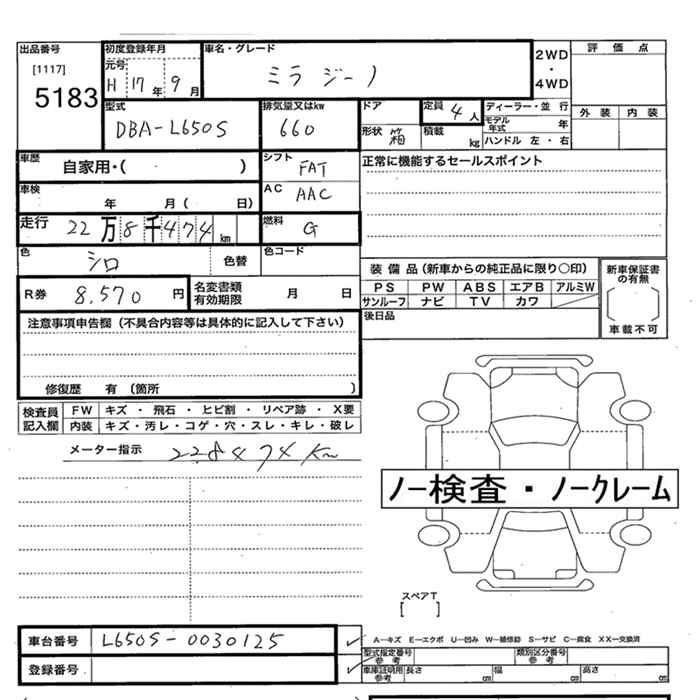 出品番号 [1117] 5183
初度登録年月 元号 H 17年 9月
車名・グレード ミラ ジーノ
2WD・4WD
評価点
外装 内装
型式 DBA-L650S
排気量又はkw 660
ドア 形状 箱
定員 4人 積載 kg
ディーラー・並行
モデル年式 年
ハンドル 左・右
車歴 自家用・( )
シフト FAT
正常に機能するセールスポイント
車検 年 月( 日)
AC AAC
走行 22万8千474km
燃料 G
色 シロ 色替
色コード
装備品(新車からの純正品に限り〇印)
PS PW ABS エアB アルミW
サンルーフ ナビ TV カワ
新車保証書の有無
車載不可
R券 8,570円
名変書類有効期限 月 日
後日品
注意事項申告欄(不具合内容等は具体的に記入して下さい)
修復歴 有(箇所 )
検査員記入欄
FW キズ・飛石・ヒビ割・リペア跡・X要
内装 キズ・汚レ・コゲ・穴・スレ・キレ・破レ
メーター指示 228474Km
ノー検査・ノークレーム
スペアT
[ ]
車台番号 L650S-0030125
登録番号
A―キズ E―エクボ U―凹み W―補修跡 S―サビ C―腐食 XX―交換済
型式指定番号 参考
類別区分番号 参考
車庫証明用 参考 長さ cm 幅 cm 高さ cm